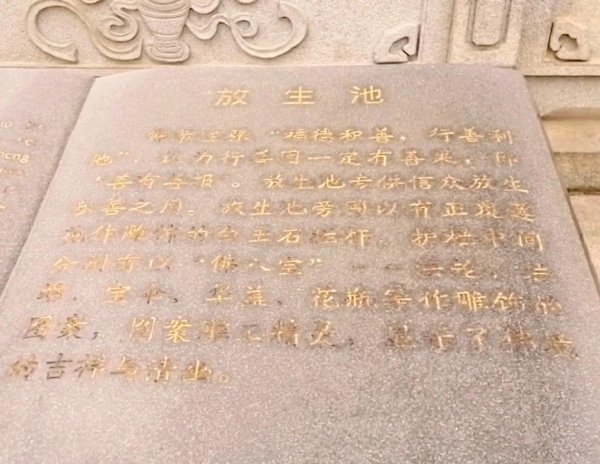 放生池
佛教主张“福德和善,行善利
他”,认为行善因一定有善果,即
“善有善报”。放生池专供信众放生
积善之用。放生池旁围以有正
作雕饰的白玉石栏杆,护栏中间
分别有以“佛八宝”——法轮、法
螺、宝伞、华盖、花瓶等作雕饰的
图案,图案雕工精美,显示了佛教
的吉祥与清幽。